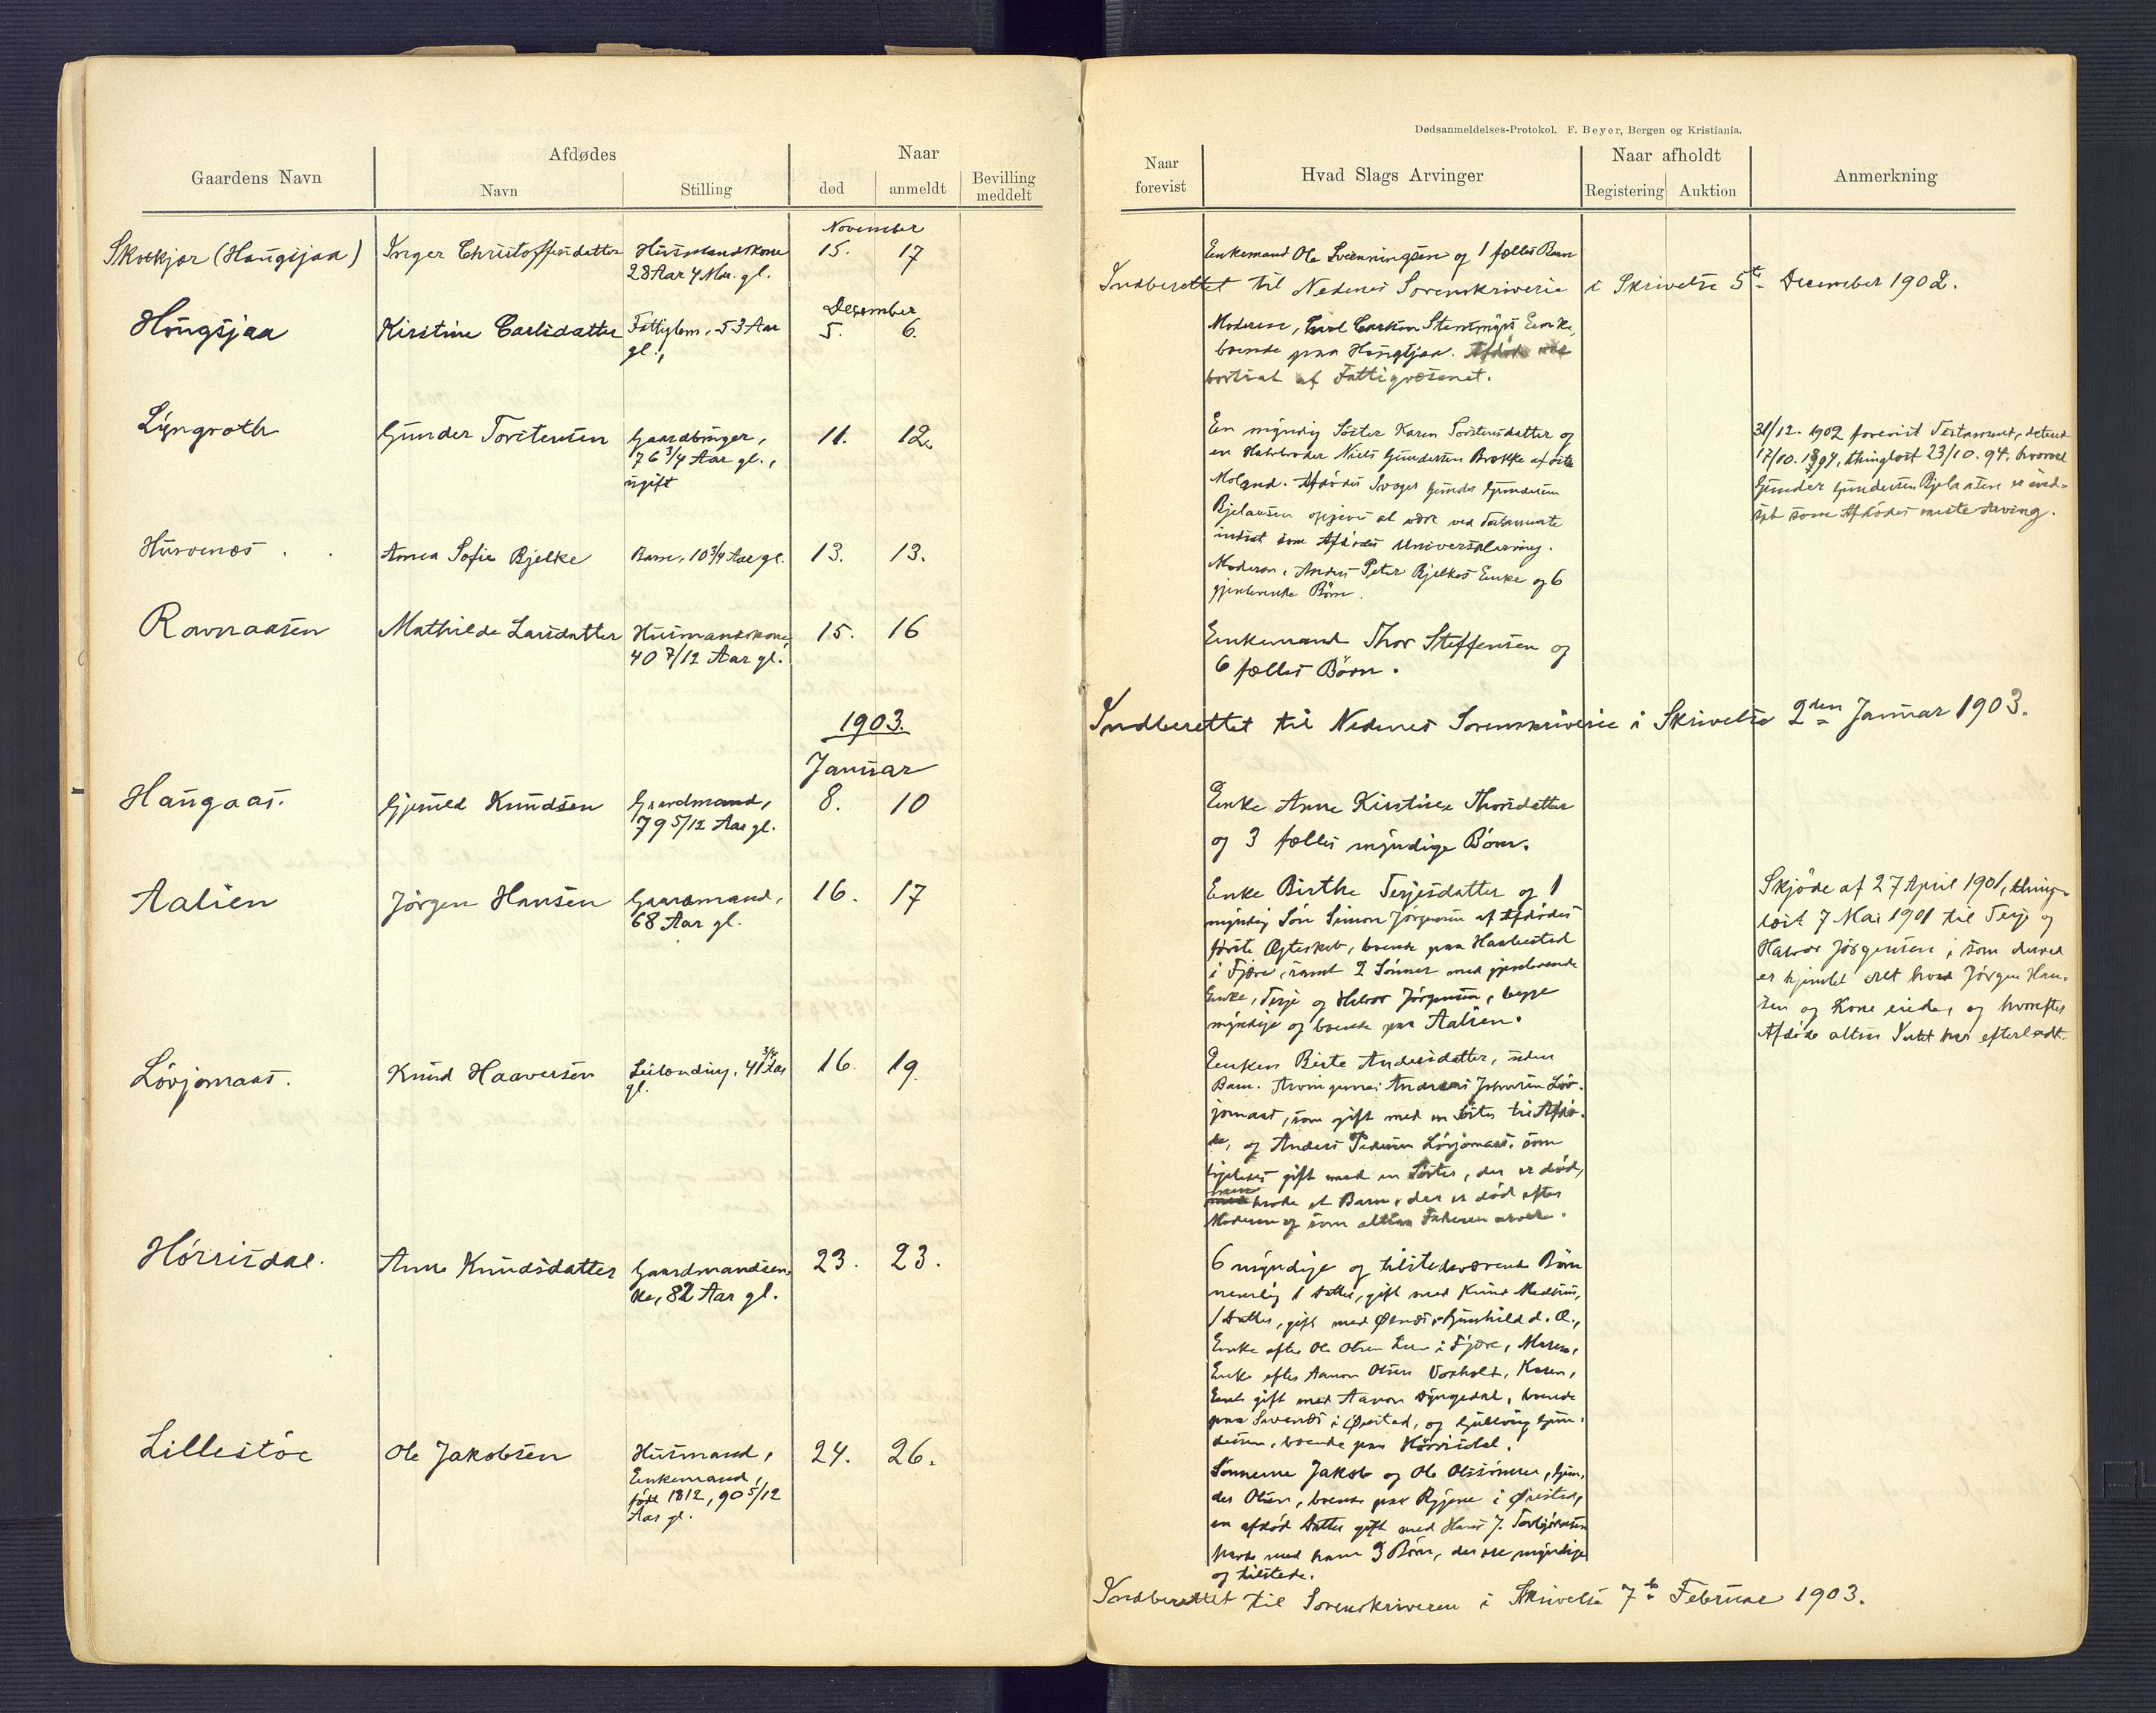 Dødsanmeldelses-Protokol. F. Beyer, Bergen og Kristiania.
Gaardens Navn
Afdødes
Navn
Stilling
Naar
død
anmeldt
Bevilling
meddelt
Naar
forevist
Hvad Slags Arvinger
Naar afholdt
Registering
Auktion
Anmerkning
November
Skotkjær (Haugsjaa)
Inger Christoffersdatter
Husmandskone
28 Aar 4 Mdr. gl.
15.
17
Enkemand Ole Svenningsen og 1 fælles Barn
Indberettet til Nedenes Sorenskriverie i Skrivelse 5te December 1902.
Desember
Haugsjaa
Kirstine Carlsdatter
Fattiglem, 53 Aar
gl.,
5.
6.
Moderen, Carl Carlsen Stentmyrs Enke,
boende paa Haugsjaa. Afdøde var
bortsat af Fattigvæsenet.
Lyngroth
Gunder Torstensen
Gaardbruger,
76 3/4 Aar gl.,
ugift
11.
12.
En myndig Søster Karen Torstensdatter og
en Halvbroder Niels Gundersen Brække af østre
Moland. Afdødes Svoger Gunder Gundersen
Bjelaasen opgives at være ved Testamente
indsat som Afdødes Universalarving.
31/12. 1902 forevist Testament, dateret
17/10. 1894, thinglæst 23/10. 94, hvorved
Gunder Gundersen Bjelaasen er ind-
sat som Afdødes eneste Arving.
Husvenæs
Anna Sofie Bjelke
Barn, 10 3/4 Aar gl.
13.
13.
Moderen, Anders Peter Bjelkes Enke og 6
gjenlevende Børn.
Ravnaasen
Mathilde Larsdatter
Husmandskone
40 7/12 Aar gl.
15.
16
Enkemand Thor Steffensen og
6 fælles Børn.
Indberettet til Nedenes Sorenskriverie i Skrivelse 2den Januar 1903.
1903.
Januar
Haugaas.
Gjeruld Knudsen
Gaardmand,
79 5/12 Aar gl.
8.
10
Enke Anne Kirstine Thorsdatter
og 3 fælles myndige Børn.
Aalien
Jørgen Hansen
Gaardmand,
68 Aar gl.
16.
17
Enke Birthe Terjesdatter og 1
myndig Søn Simon Jørgensen af Afdødes
første Ægteskab, boende paa Haabestad
i Fjære, samt 2 Sønner med gjenlevende
Enke, Terje og Halvor Jørgensen, begge
myndige og boende paa Aalien.
Skjøde af 27 April 1901, thing-
læst 7 Mai 1901 til Terje og
Halvor Jørgensen, som derved
er hjemlet alt hvad Jørgen Han-
sen og Kone eiede, og hvorefter
Afdøde altsaa Intet har efterladt.
Løvjomaas.
Knud Haaversen
Leilænding, 41 3/4 Aar
gl.
16.
19.
Enken Birte Andersdatter, uden
Barn. Arvingerne: Andreas Johnsen Løv-
jomaas, som gift med en Søster til Afdø-
de, og Anders Pedersen Løvjomaas, som
ligeledes gift med en Søster, der er død,
men havde et Barn, der er død efter
Moderen og som altsaa Faderen arver.
Hørrisdal.
Anne Knudsdatter
Gaardmandsen-
ke, 82 Aar gl.
23.
23.
6 myndige og tilstedeværende Børn
nemlig 1 Datter, gift med Knud
1 Datter, gift med Gunhild d. O.,
Enke efter Ole Olsen i Fjære, Maren,
Enke efter Aanon Olsen Voxholt, Karen,
gift med Aanon boende
paa i Øiestad, og Gjulling Gun-
dersen, boende paa Hørrisdal.
Lillestøe
Ole Jakobsen
Husmand,
Enkemand,
født 1812, 90 5/12
Aar gl.
24.
26.
Sønnerne Jakob og Ole Olssønner, Gun-
der Olsen, boende paa Rygene i Øiestad,
en afdød Datter gift med Hans J. Torbjørnsen
havde med ham 3 Børn, der ere myndige
og tilstede.
Indberettet til Sorenskriveren i Skrivelse 7de Februar 1903.